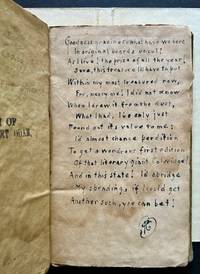 Goodness gracious what have we here
In original boards uncut!
As I live! the prize of all the year!
Sure, this treasure I'll have to put
Within my most treasured row,
For, mercy me! I did not know
When I drew it from the dust,
What I had, I've only just
Found out its value to me:
'Id almost chance perdition
To get a wondrous first edition
Of that literary giant Coleridge!
And in this state! I'd abridge
My spendings, if I could get
Another such, you can bet!
OF